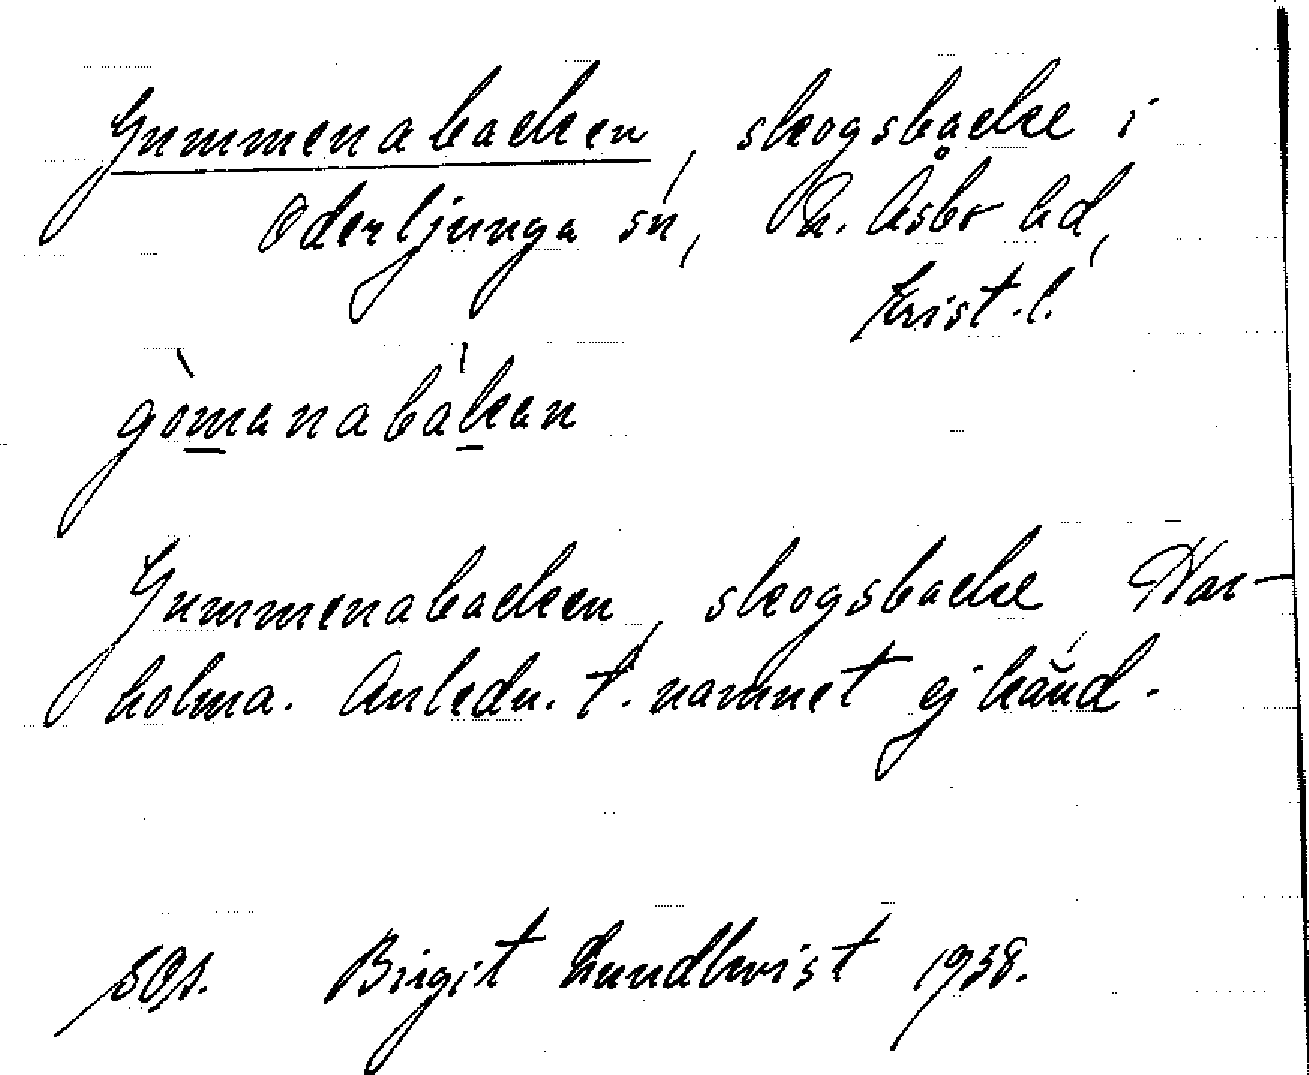 Gummenabacken, skogsbacke i
Oderljunga sn, N. Åsbo hd,
Krist. l.
gòmanabákan
Gummenabacken, skogsbacke, Har-
holma. Anledn. t. namnet ej känd.
Birgit Lundkvist 1938.